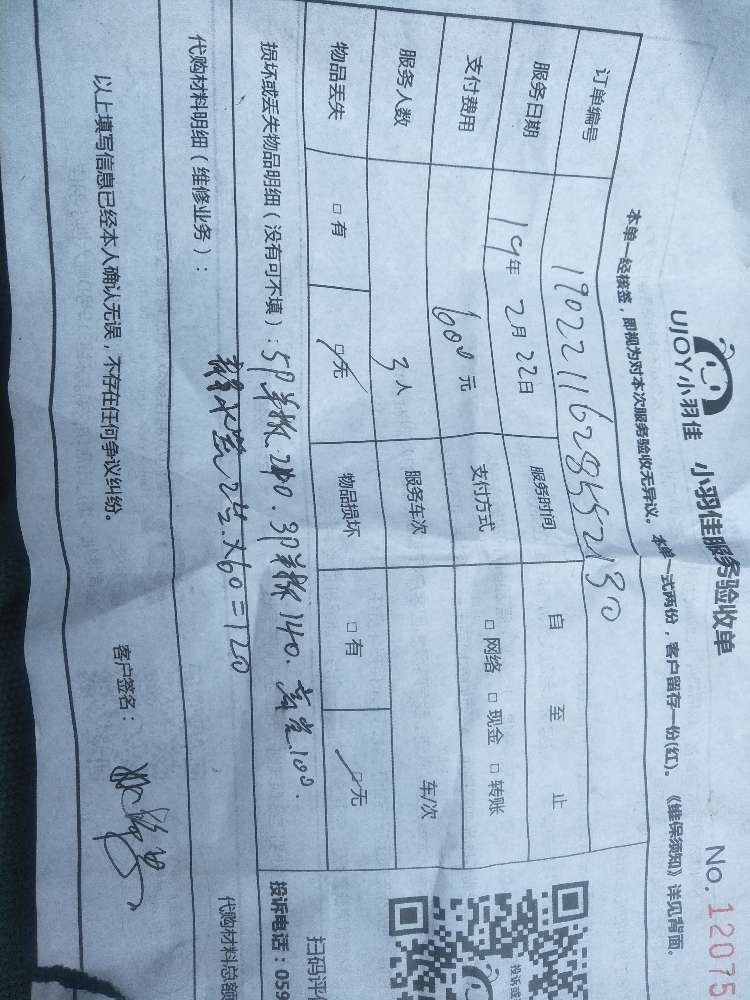 UJOY小羽佳 小羽佳服务验收单 No. 12075
本单一经接签，即视为对本次服务验收无异议。本单一式两份，客户留存一份(红)。《维保须知》详见背面。
订单编号 19022116285552130
服务日期 19年 2月 22日 服务时间 自 至 止
支付费用 600元 支付方式 □网络 □现金 □转账
服务人数 3人 服务车次 车/次
物品丢失 □有 □无 物品损坏 □有 □无
损坏或丢失物品明细（没有可不填）：5P 240. 3P 140. 100.
代购材料明细（维修业务）： 水管2 ×60=120
代购材料总额
以上填写信息已经本人确认无误，不存在任何争议纠纷。 客户签名：
扫码评价
投诉电话：059
投诉或